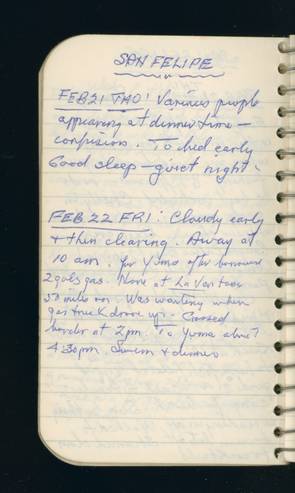 SAN FELIPE
FEB 21 THO: Various people
appearing at dinner time —
confusion. To bed early
Good sleep — quiet night.
FEB 22 FRI: Cloudy early
+ then clearing. Away at
10 am. for Yuma after borrowing
2 gals gas. None at La Ventana
50 miles on. Was waiting when
gas truck drove up — Crossed
border at 2pm. To Yuma about
4:30pm. Swim + dinner